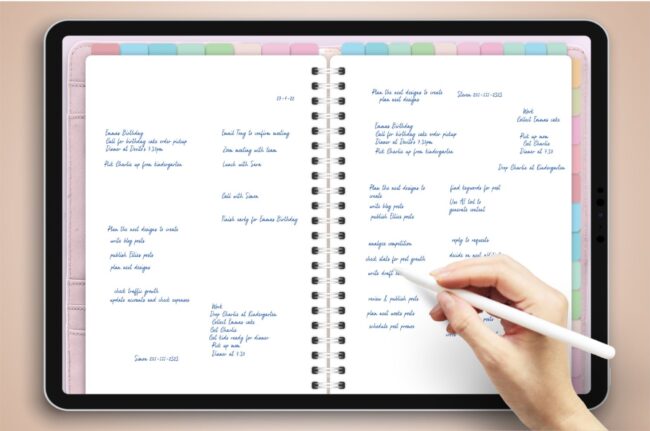 Emmas Birthday
Call for birthday cake order pickup
Pick Charlie up from kindergarten
Email Tony to confirm meeting
Zoom meeting with team
Lunch with Sara
Call with Simon
Finish early for Emmas Birthday
Plan the next designs to create
write blog posts
publish Ellies posts
plan next designs
check traffic growth
update accounts and check expenses
Work
Drop Charlie at Kindergarten
Collect Emmas cake
Get Charlie
Get kids ready for dinner
Pick up mom
Dinner at 7:30
Plan the next designs to create
plan next designs
Work
Collect Emmas cake
Emmas Birthday
Call for birthday cake order pickup
Pick Charlie up from kindergarten
Pick up mom
Get Charlie
Dinner at 7:30
Drop Charlie at Kindergarten
Plan the next designs to
create
write blog posts
publish Ellies posts
find keywords for post
Use AI tool to
generate content
analyze competition
check stats for post growth
write draft
reply to requests
decide on next
review & publish posts
plan next weeks posts
schedule post promos
posts